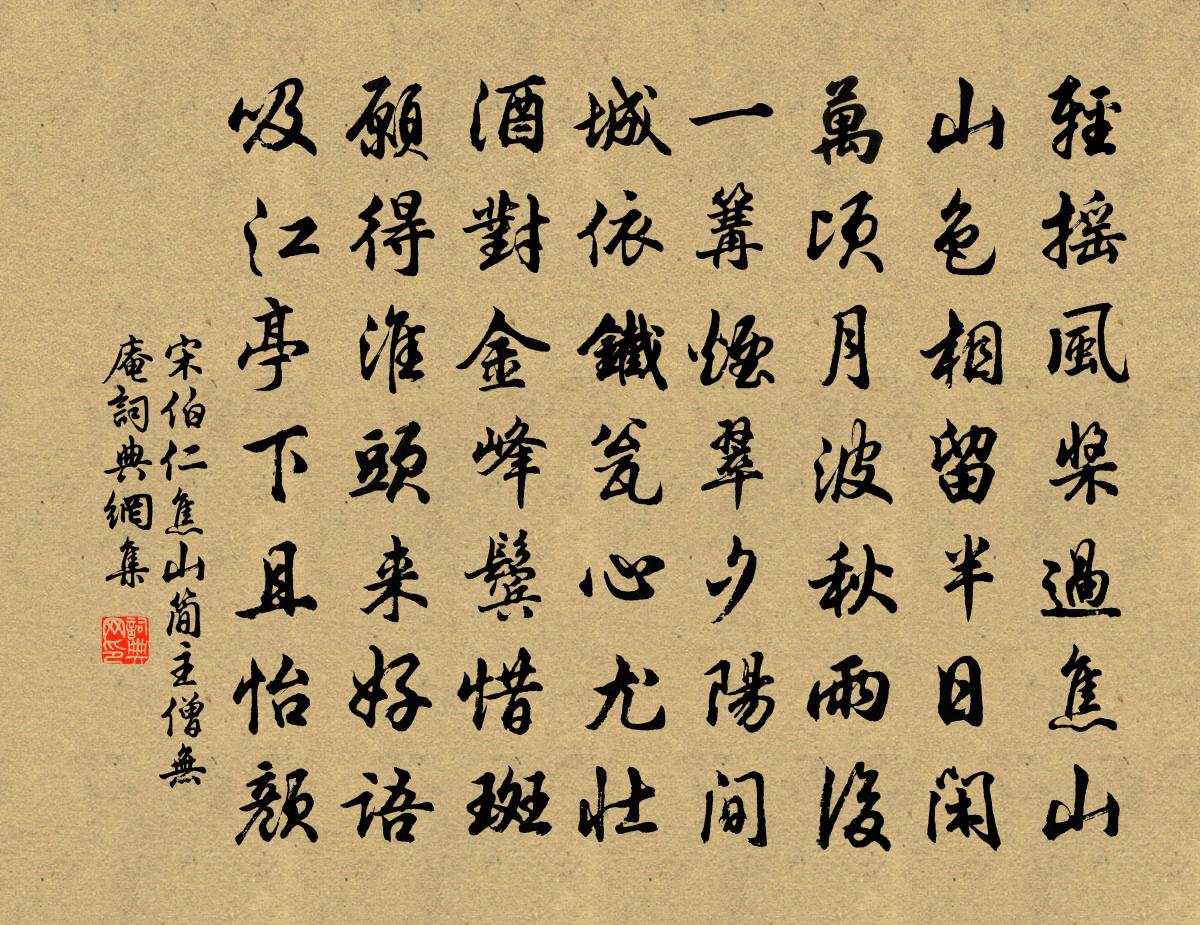 輕搖風槳過焦山
山色相留半日閑
萬頃月波秋雨後
一篝煙翠夕陽間
城依鐵瓮心尤壯
酒對金峰鬢惜斑
願得淮頭来好語
吸江亭下且怡顏
宋伯仁焦山簡主僧無
庵詞典網集
詞典网印